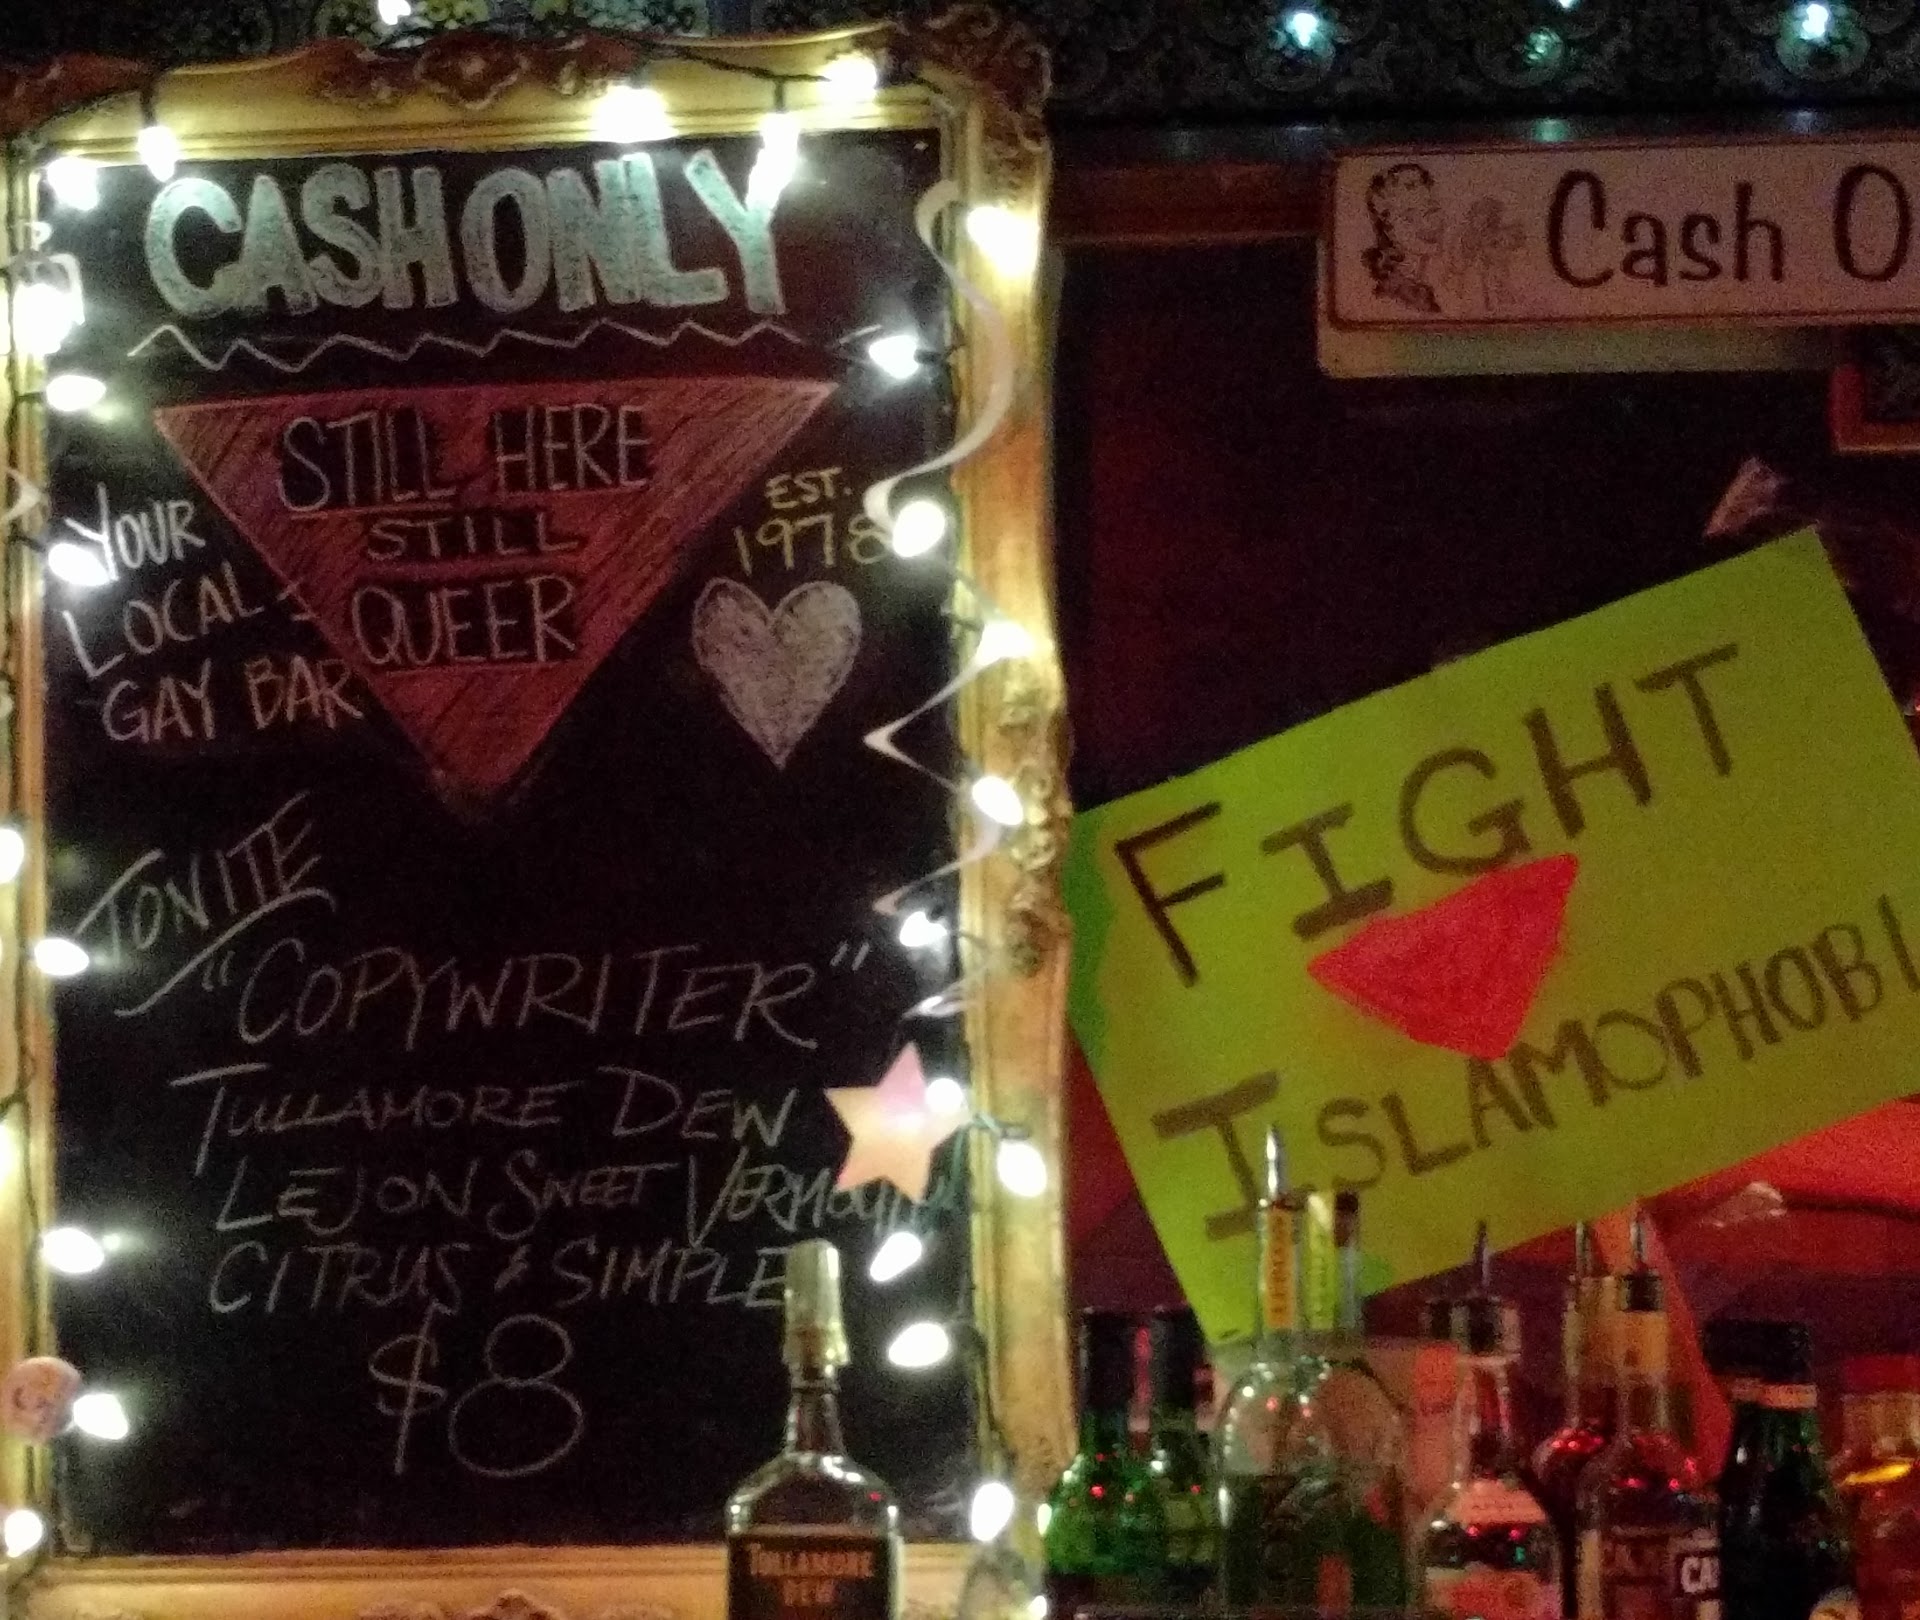 CASH ONLY
STILL HERE
STILL
QUEER
YOUR
LOCAL
GAY BAR
EST.
1978
TONITE
"COPYWRITER"
TULLAMORE DEW
LEJON SWEET VERMOUTH
CITRUS & SIMPLE
$8
TULLAMORE
DEW
Cash O
FIGHT
ISLAMOPHOBI